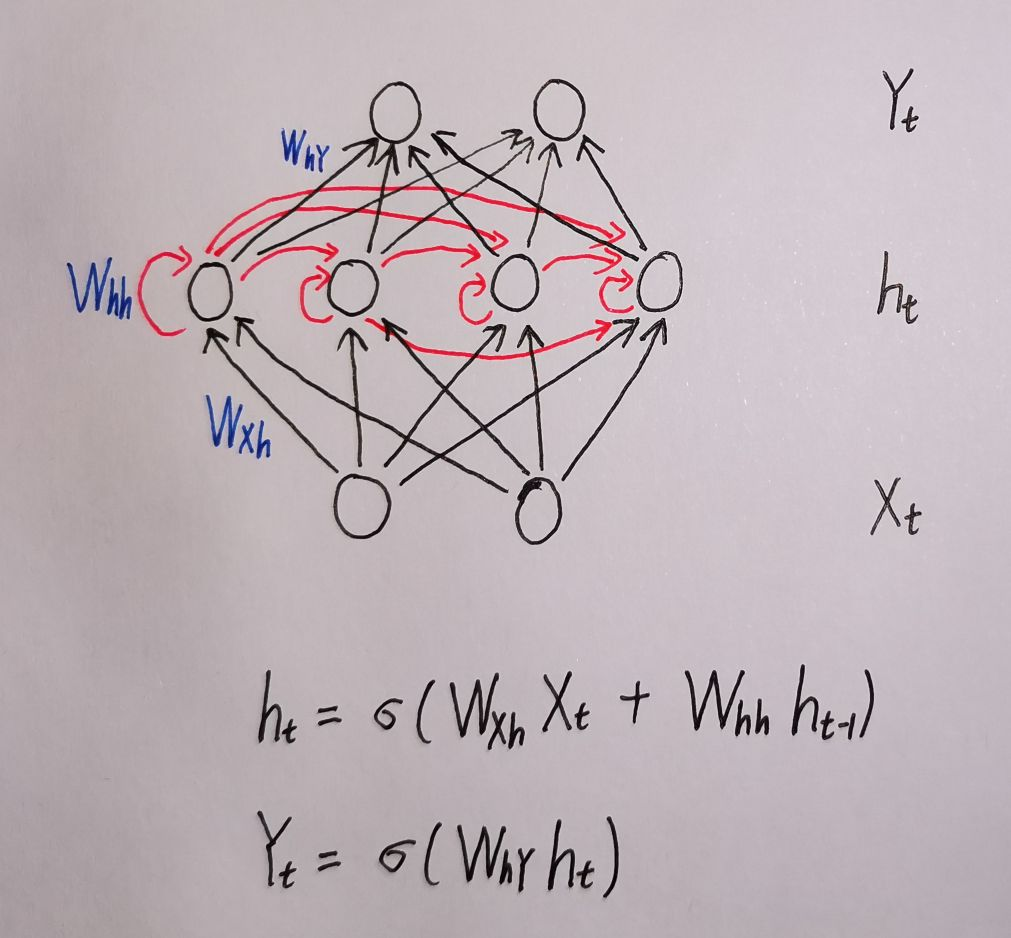 Yt
WhY
Whh
ht
WXh
Xt
ht = σ(WXh Xt + Whh ht-1)
Yt = σ(WhY ht)